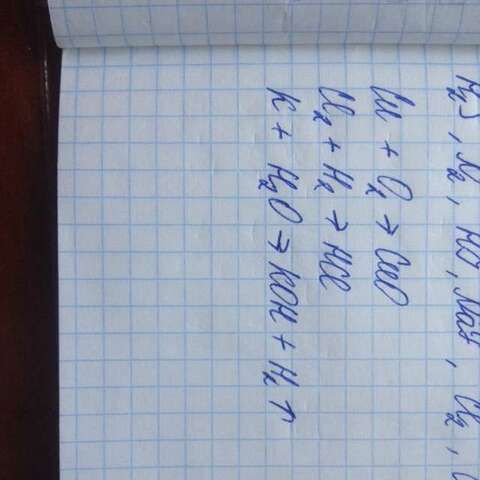 H₂S, N₂, HCl, NaF, Cl₂,
Cu + O₂ → CuO
Cl₂ + H₂ → HCl
K + H₂O → KOH + H₂↑